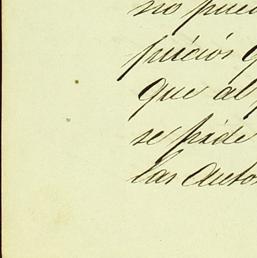 no pue
juicios q
que al
se pide
las Auto